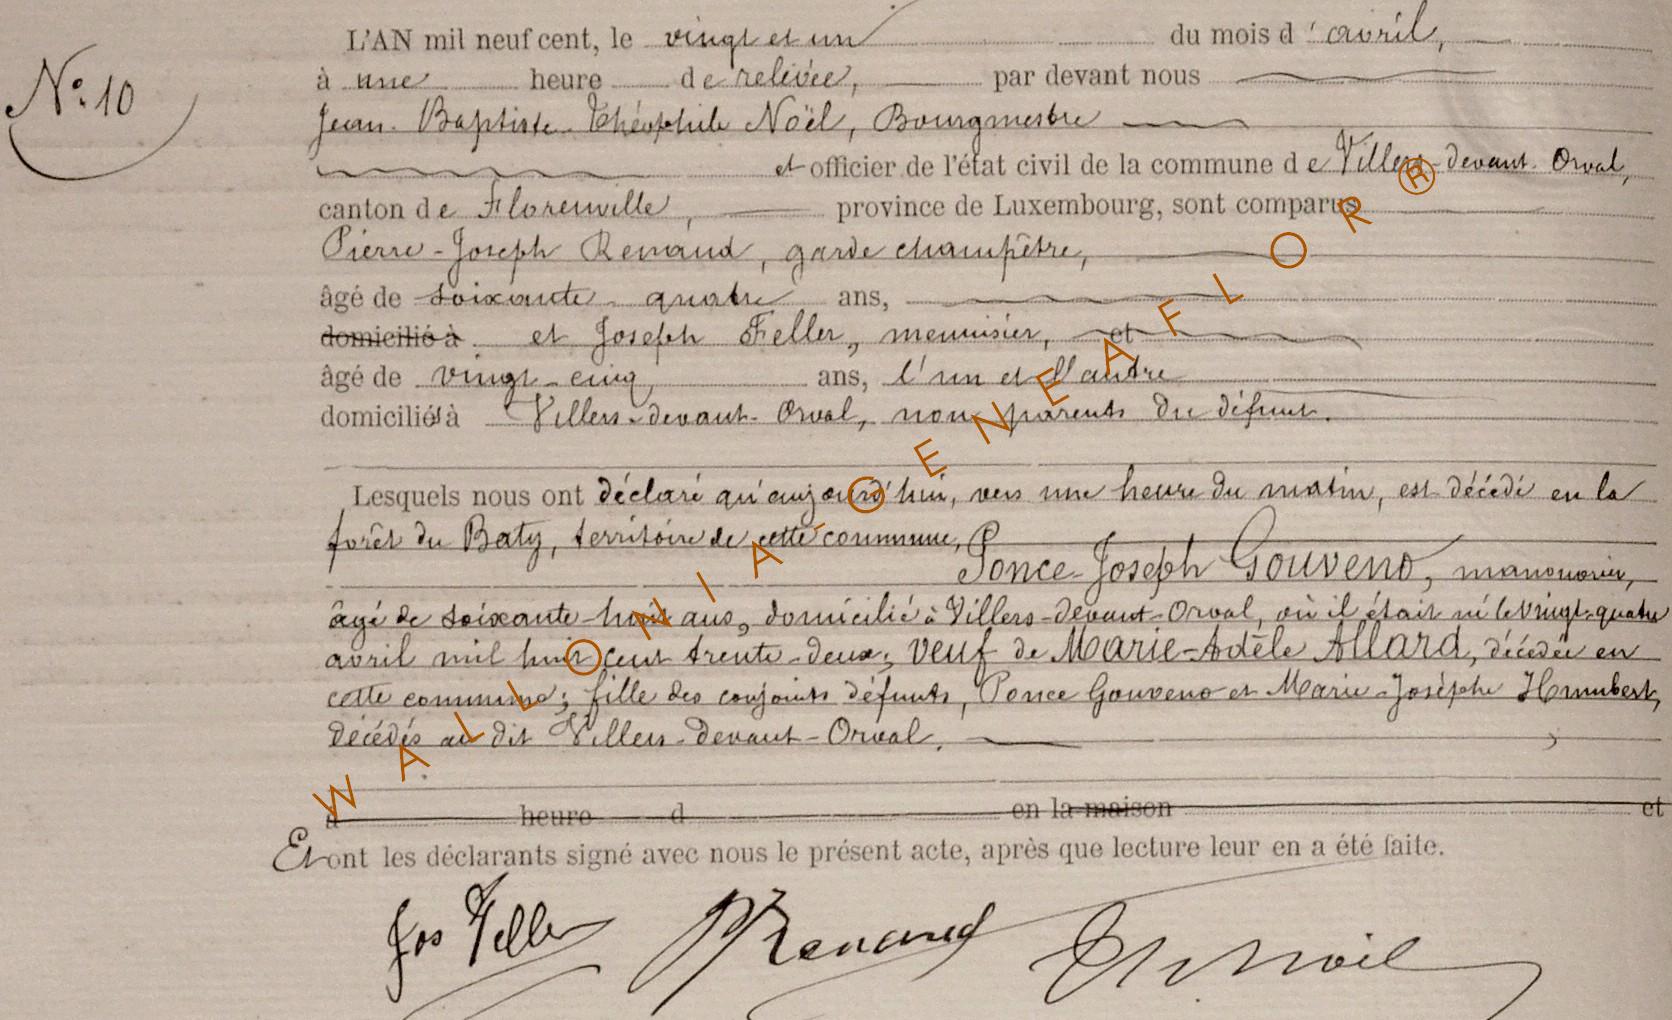 N° 10
L'AN mil neuf cent, le vingt et un du mois d'avril,
à une heure de relevée, par devant nous
Jean-Baptiste-Théophile Noël, Bourgmestre
et officier de l'état civil de la commune de Villers-devant-Orval,
canton de Florenville, province de Luxembourg, sont comparus
Pierre-Joseph Renaud, garde champêtre,
âgé de soixante-quatre ans,
domicilié à et Joseph Feller, menuisier, et
âgé de vingt-cinq ans, l'un et l'autre
domiciliés à Villers-devant-Orval, non parents du défunt.
Lesquels nous ont déclaré qu'aujourd'hui, vers une heure du matin, est décédé en la
forêt du Baty, territoire de cette commune,
Ponce-Joseph Gouveno, manouvrier,
âgé de soixante-huit ans, domicilié à Villers-devant-Orval, où il était né le vingt-quatre
avril mil huit cent trente-deux; veuf de Marie-Adèle Allard, décédée en
cette commune; fille des conjoints défunts, Ponce Gouveno et Marie-Josèphe Humbert,
décédés au dit Villers-devant-Orval.
à heure d en la maison et
Et ont les déclarants signé avec nous le présent acte, après que lecture leur en a été faite.
Jos Feller PJRenaud Th Noël
WALLONIA-GENEAFLOR®